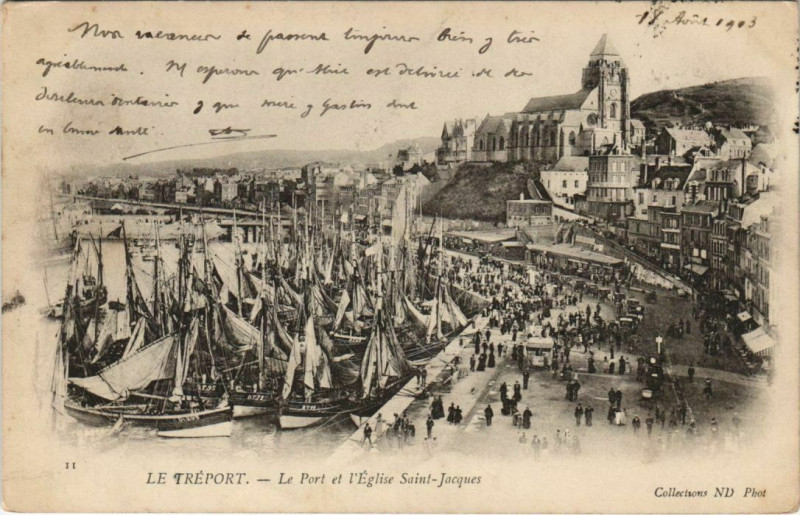 18 Août 1903
Nos vacances se passent toujours bien & très
agréablement. J'espérons que Mlle est débarrassée de ses
douleurs dentaires & que & Gaston sont
en bonne santé.
11
LE TRÉPORT. — Le Port et l'Église Saint-Jacques
Collections ND Phot